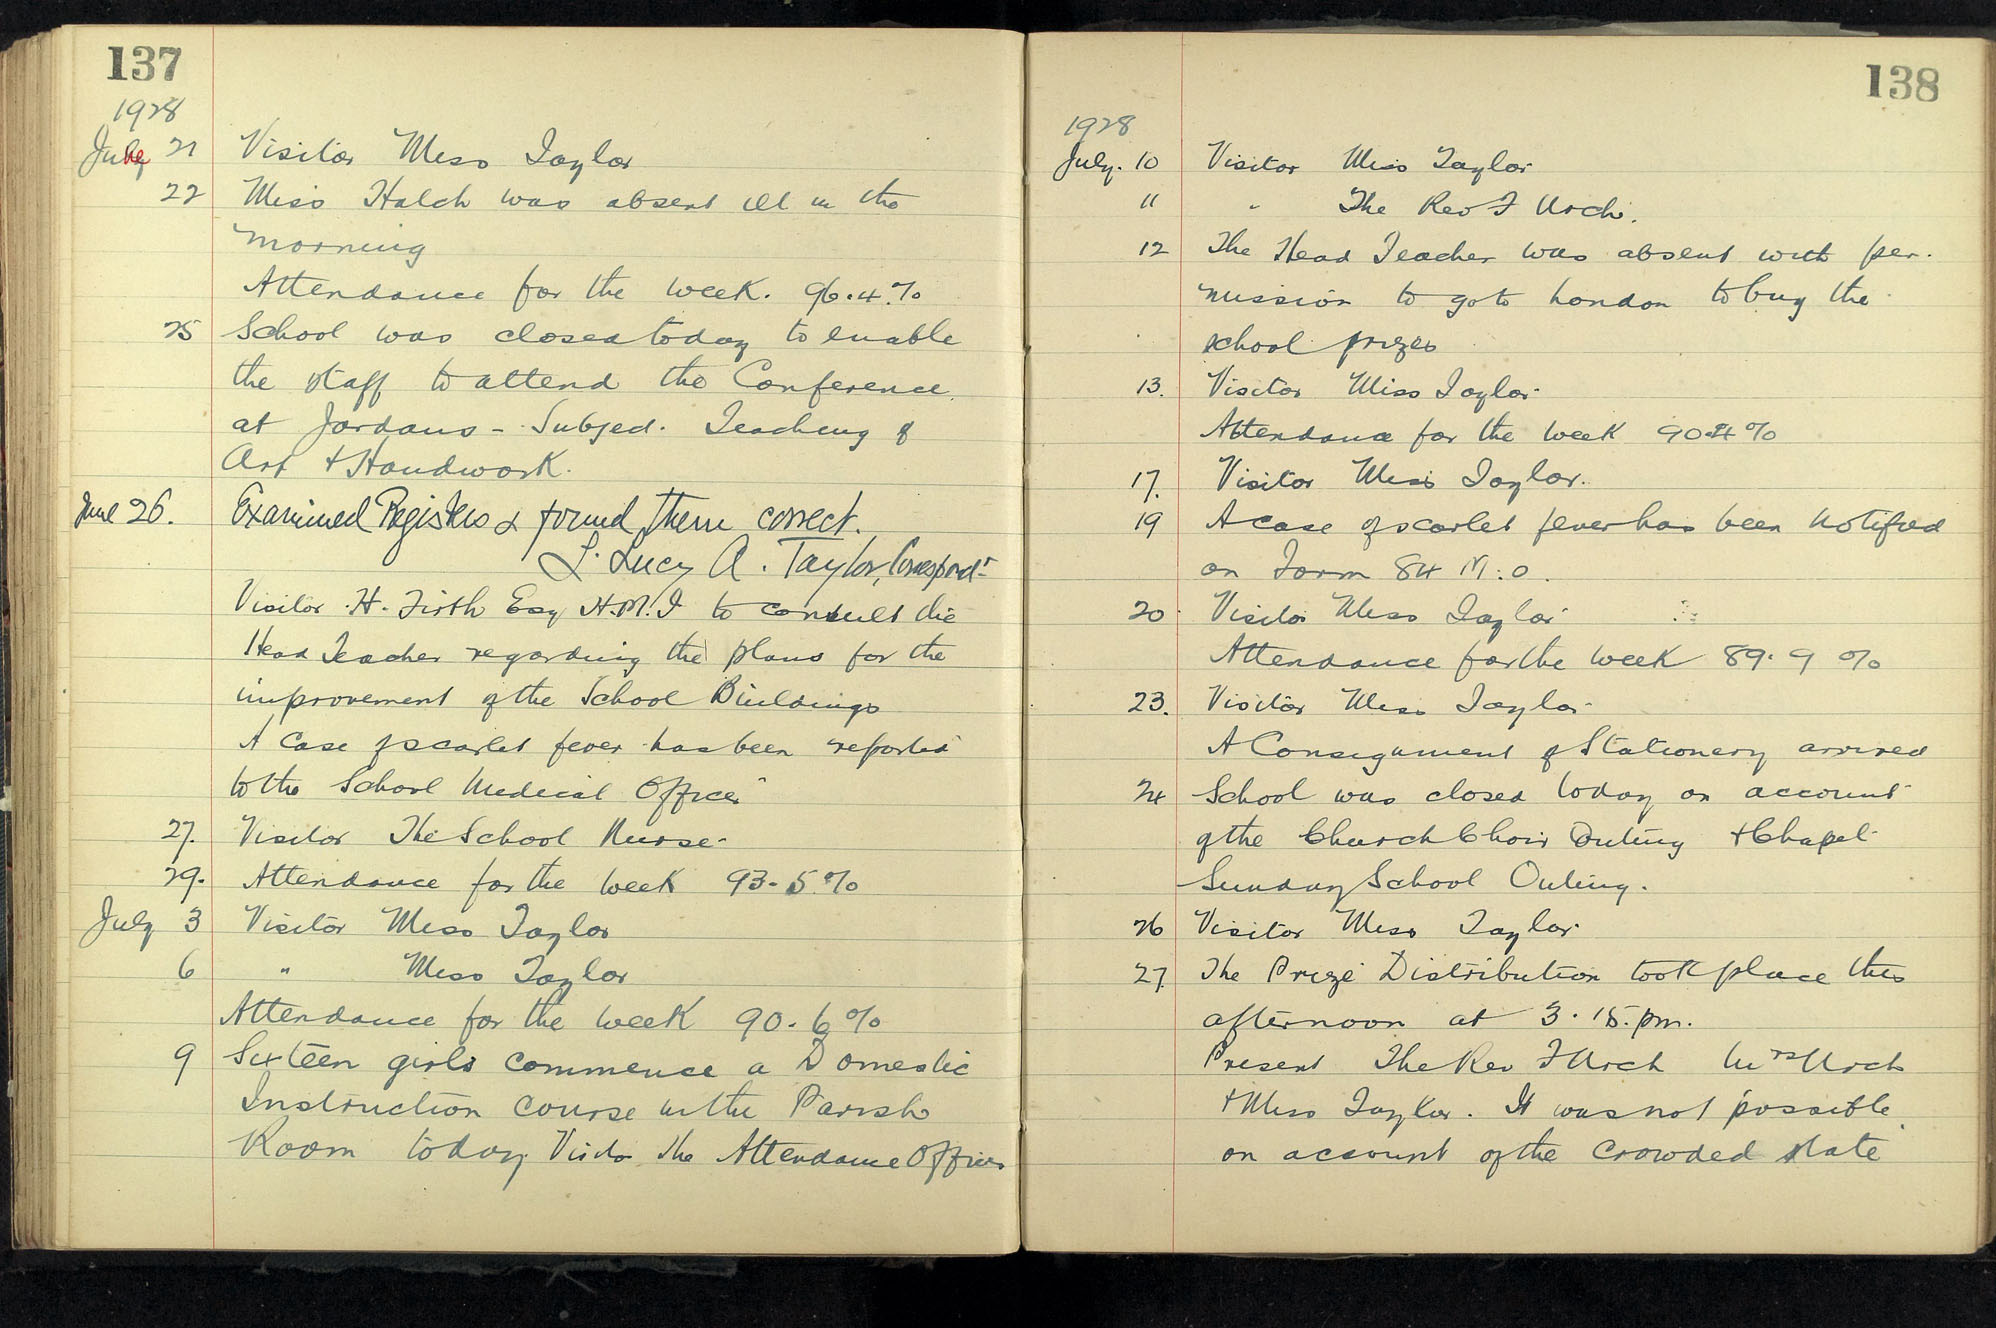 137
1928
July 21 Visitor Miss Taylor
22 Miss Halch was absent ill in the
morning
Attendance for the week. 96.4.%
25 School was closed today to enable
the staff to attend the Conference
at Jordans - Subject. Teaching of
Art + Handwork.
June 26. Examined Registers & found them correct.
L. Lucy A. Taylor, Correspondt
Visitor H. Firth Esq H.M.I to consult the
Head Teacher regarding the plans for the
improvement of the School Buildings
A case of scarlet fever has been reported
to the School Medical Officer
27. Visitor The School Nurse
29. Attendance for the week 93.5%
July 3 Visitor Miss Taylor
6 " Miss Taylor
Attendance for the week 90.6%
9 Sixteen girls commence a Domestic
Instruction course in the Parish
Room today. Visitor The Attendance Officer
138
1928
July. 10 Visitor Miss Taylor
11 " The Rev F Urch.
12 The Head Teacher was absent with per-
mission to go to London to buy the
school prizes
13. Visitor Miss Taylor
Attendance for the week 90.4%
17. Visitor Miss Taylor.
19 A case of scarlet fever has been notified
on Form 84 M.O.
20 Visitor Miss Taylor
Attendance for the week 89.9 %
23. Visitor Miss Taylor
A Consignment of Stationery arrived
24 School was closed today on account
of the Church Choir Outing + Chapel
Sunday School Outing.
26 Visitor Miss Taylor
27. The Prize Distribution took place this
afternoon at 3.15.pm.
Present The Rev F Urch Mrs Urch
+ Miss Taylor. It was not possible
on account of the crowded state